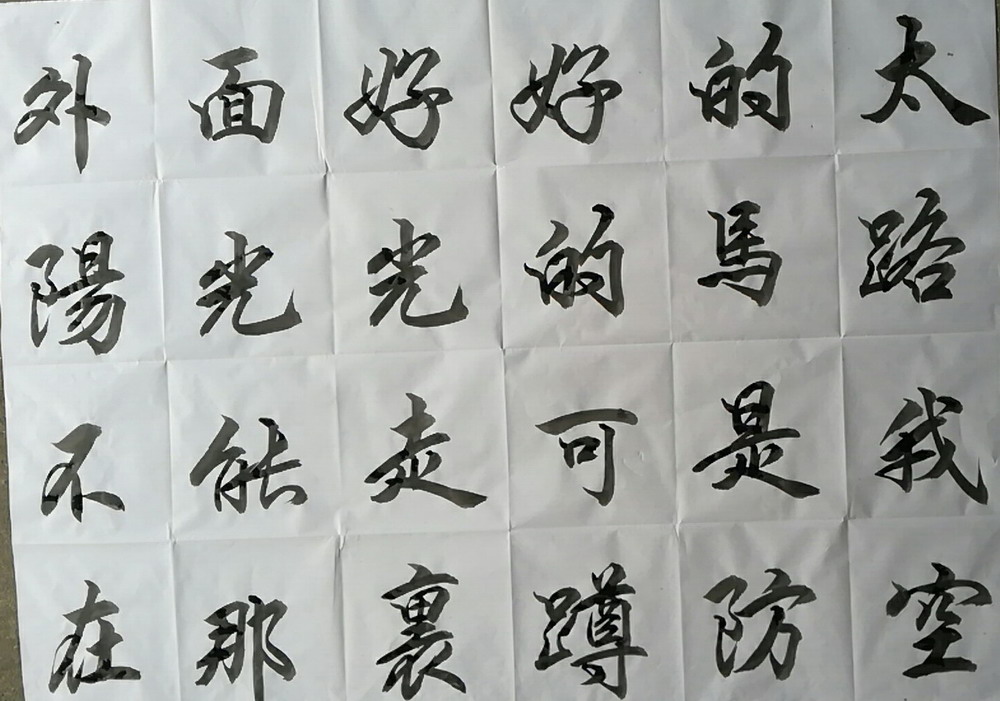 外面好好的太
陽光光的馬路
不能走可是我
在那裏蹲防空